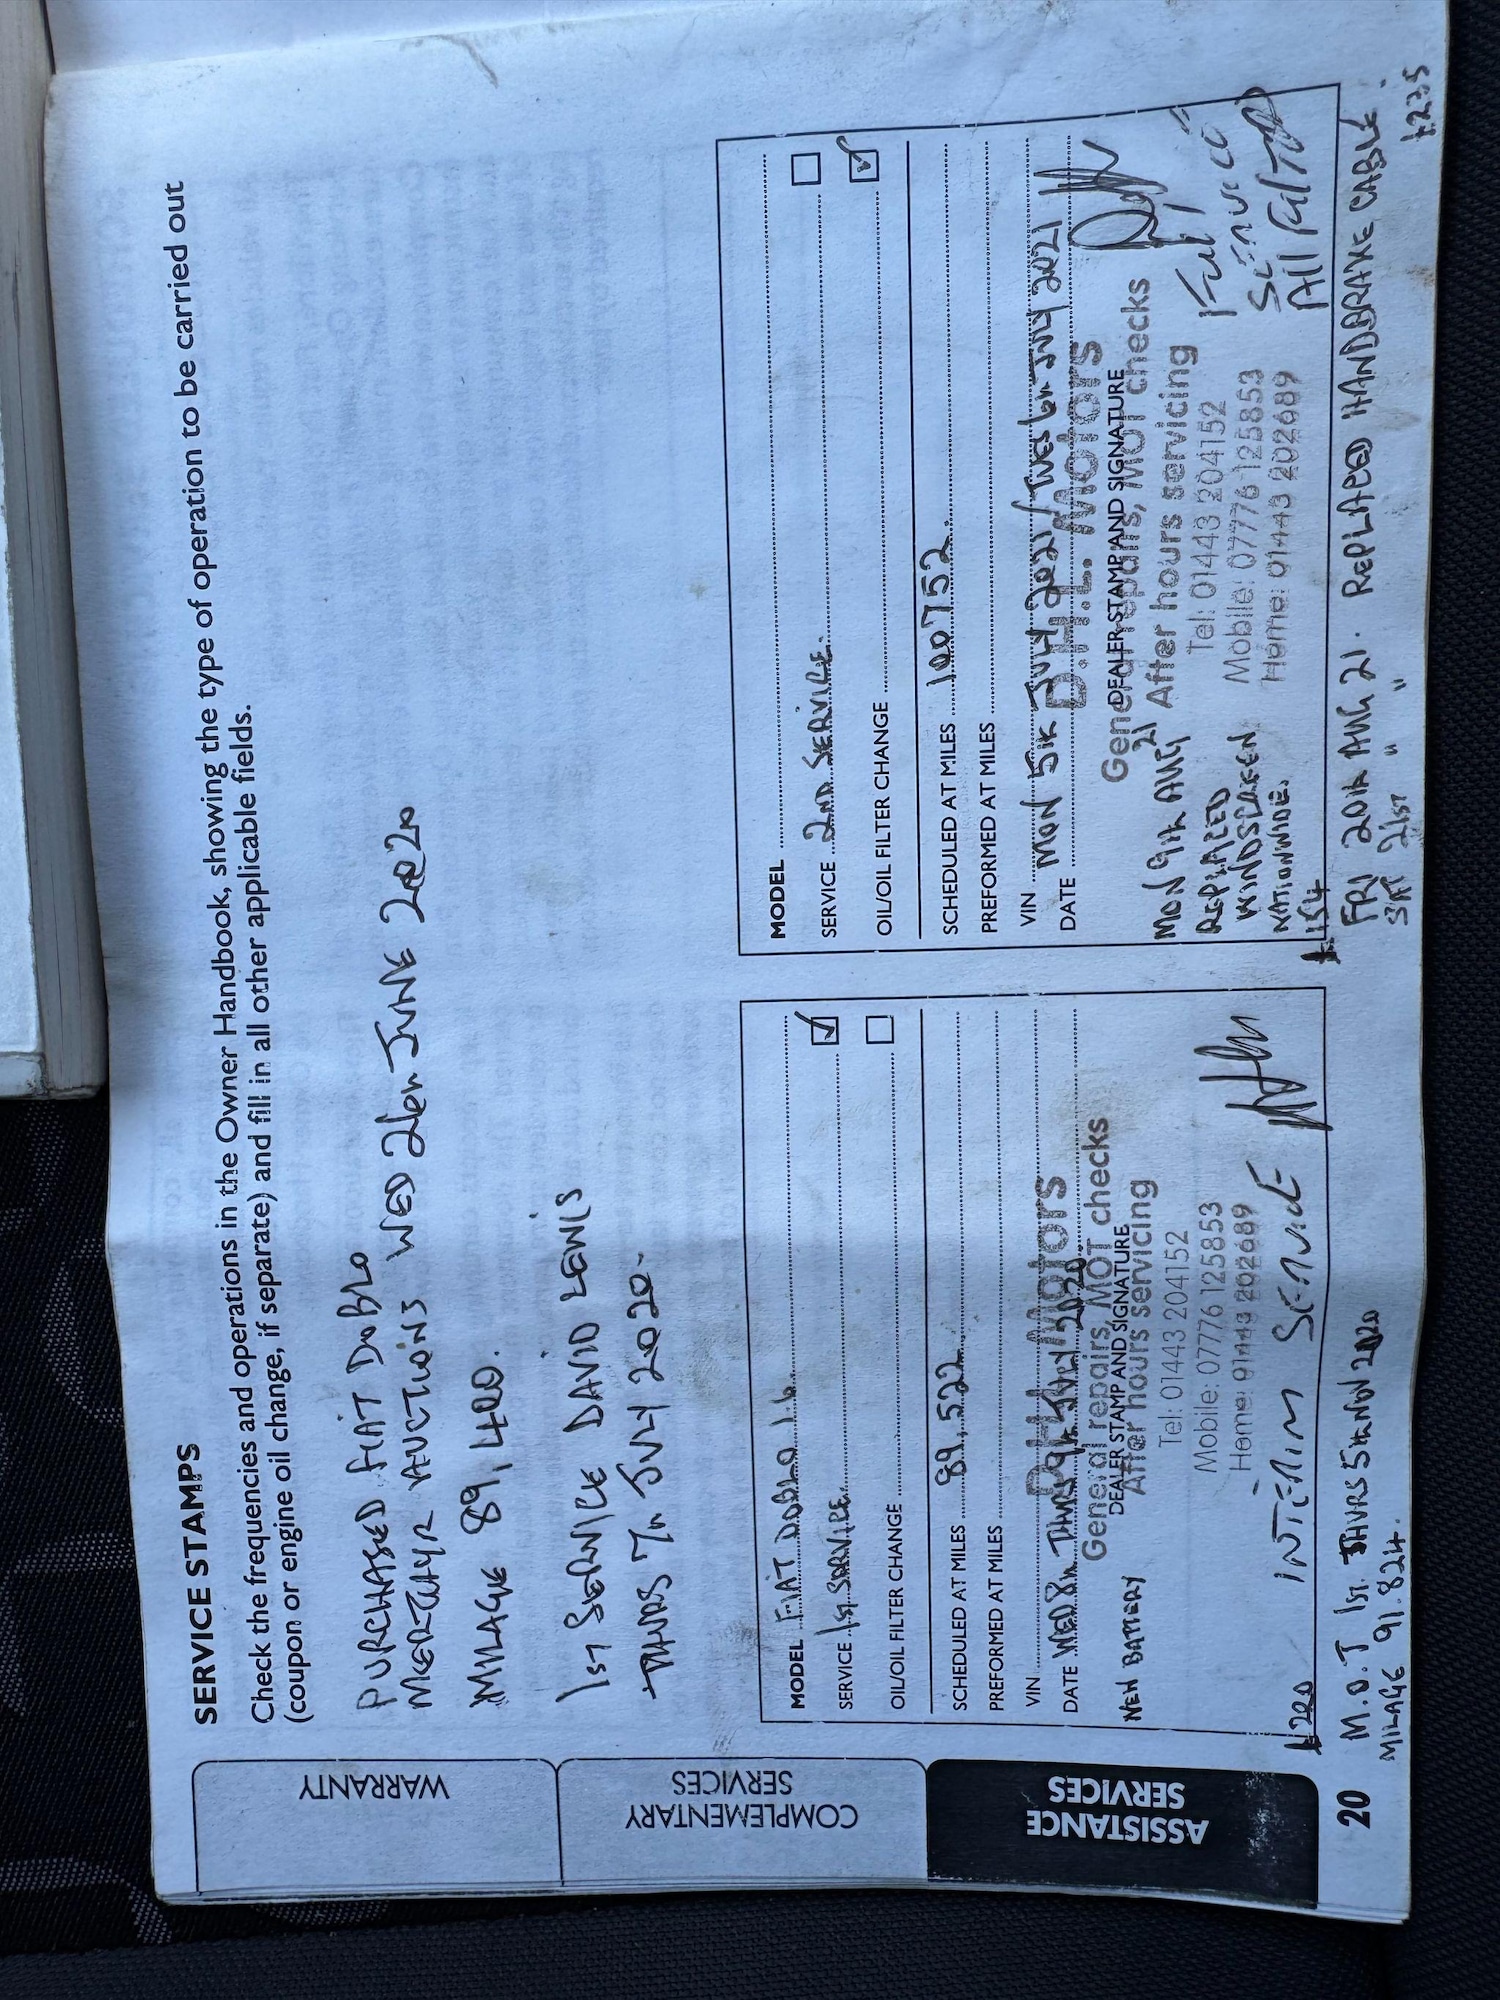 SERVICE STAMPS
Check the frequencies and operations in the Owner Handbook, showing the type of operation to be carried out
(coupon or engine oil change, if separate) and fill in all other applicable fields.
PURCHASED FIAT DOBLO
MERTHYR AUCTIONS WED JUNE 2020
MILAGE 89,400.
1ST SERVICE DAVID LEWIS
THURS JULY 2020.
MODEL FIAT DOBLO 1.6
SERVICE 1ST SERVICE.
OIL/OIL FILTER CHANGE
SCHEDULED AT MILES 89,522
PREFORMED AT MILES
VIN
DATE WED 8TH THURS 9TH JULY 2020
D.H.L. Motors
General repairs, MOT checks
DEALER STAMP AND SIGNATURE
After hours servicing
Tel: 01443 204152
Mobile: 07776 125853
Home: 01443 202689
NEW BATTERY
INTERIM SERVICE
£220
M.O.T 1ST. THURS 5TH NOV 2020
MILAGE 91.824.
MODEL
SERVICE 2ND SERVICE.
OIL/OIL FILTER CHANGE
SCHEDULED AT MILES 100752
PREFORMED AT MILES
VIN
DATE MON 5TH JULY 2021/TUES 6TH JULY 2021
D.H.L. Motors
General repairs, MOT checks
DEALER STAMP AND SIGNATURE
After hours servicing
Tel: 01443 204152
Mobile: 07776 125853
Home: 01443 202689
Full
SERVICE
All FILTERS
MON 9TH AUG 21
REPLACED
WINDSCREEN
NATIONWIDE.
£154
FRI 20TH AUG 21. REPLACED HANDBRAKE CABLE.
SAT 21ST " " £235
20
WARRANTY
COMPLEMENTARY
SERVICES
ASSISTANCE
SERVICES